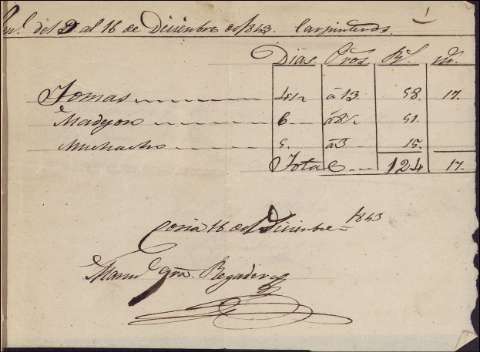 del 9 al 16 de Diciembre de 1843. Carpinteros.
Dias Pros R.s m.
Tomas 4½ a 13 58. 17.
Madejon 6. a 8½ 51.
Muchacho 5. a 3 15.
Total 124 17.
Coria 16 de Diciembre 1843
Man.l Regadera